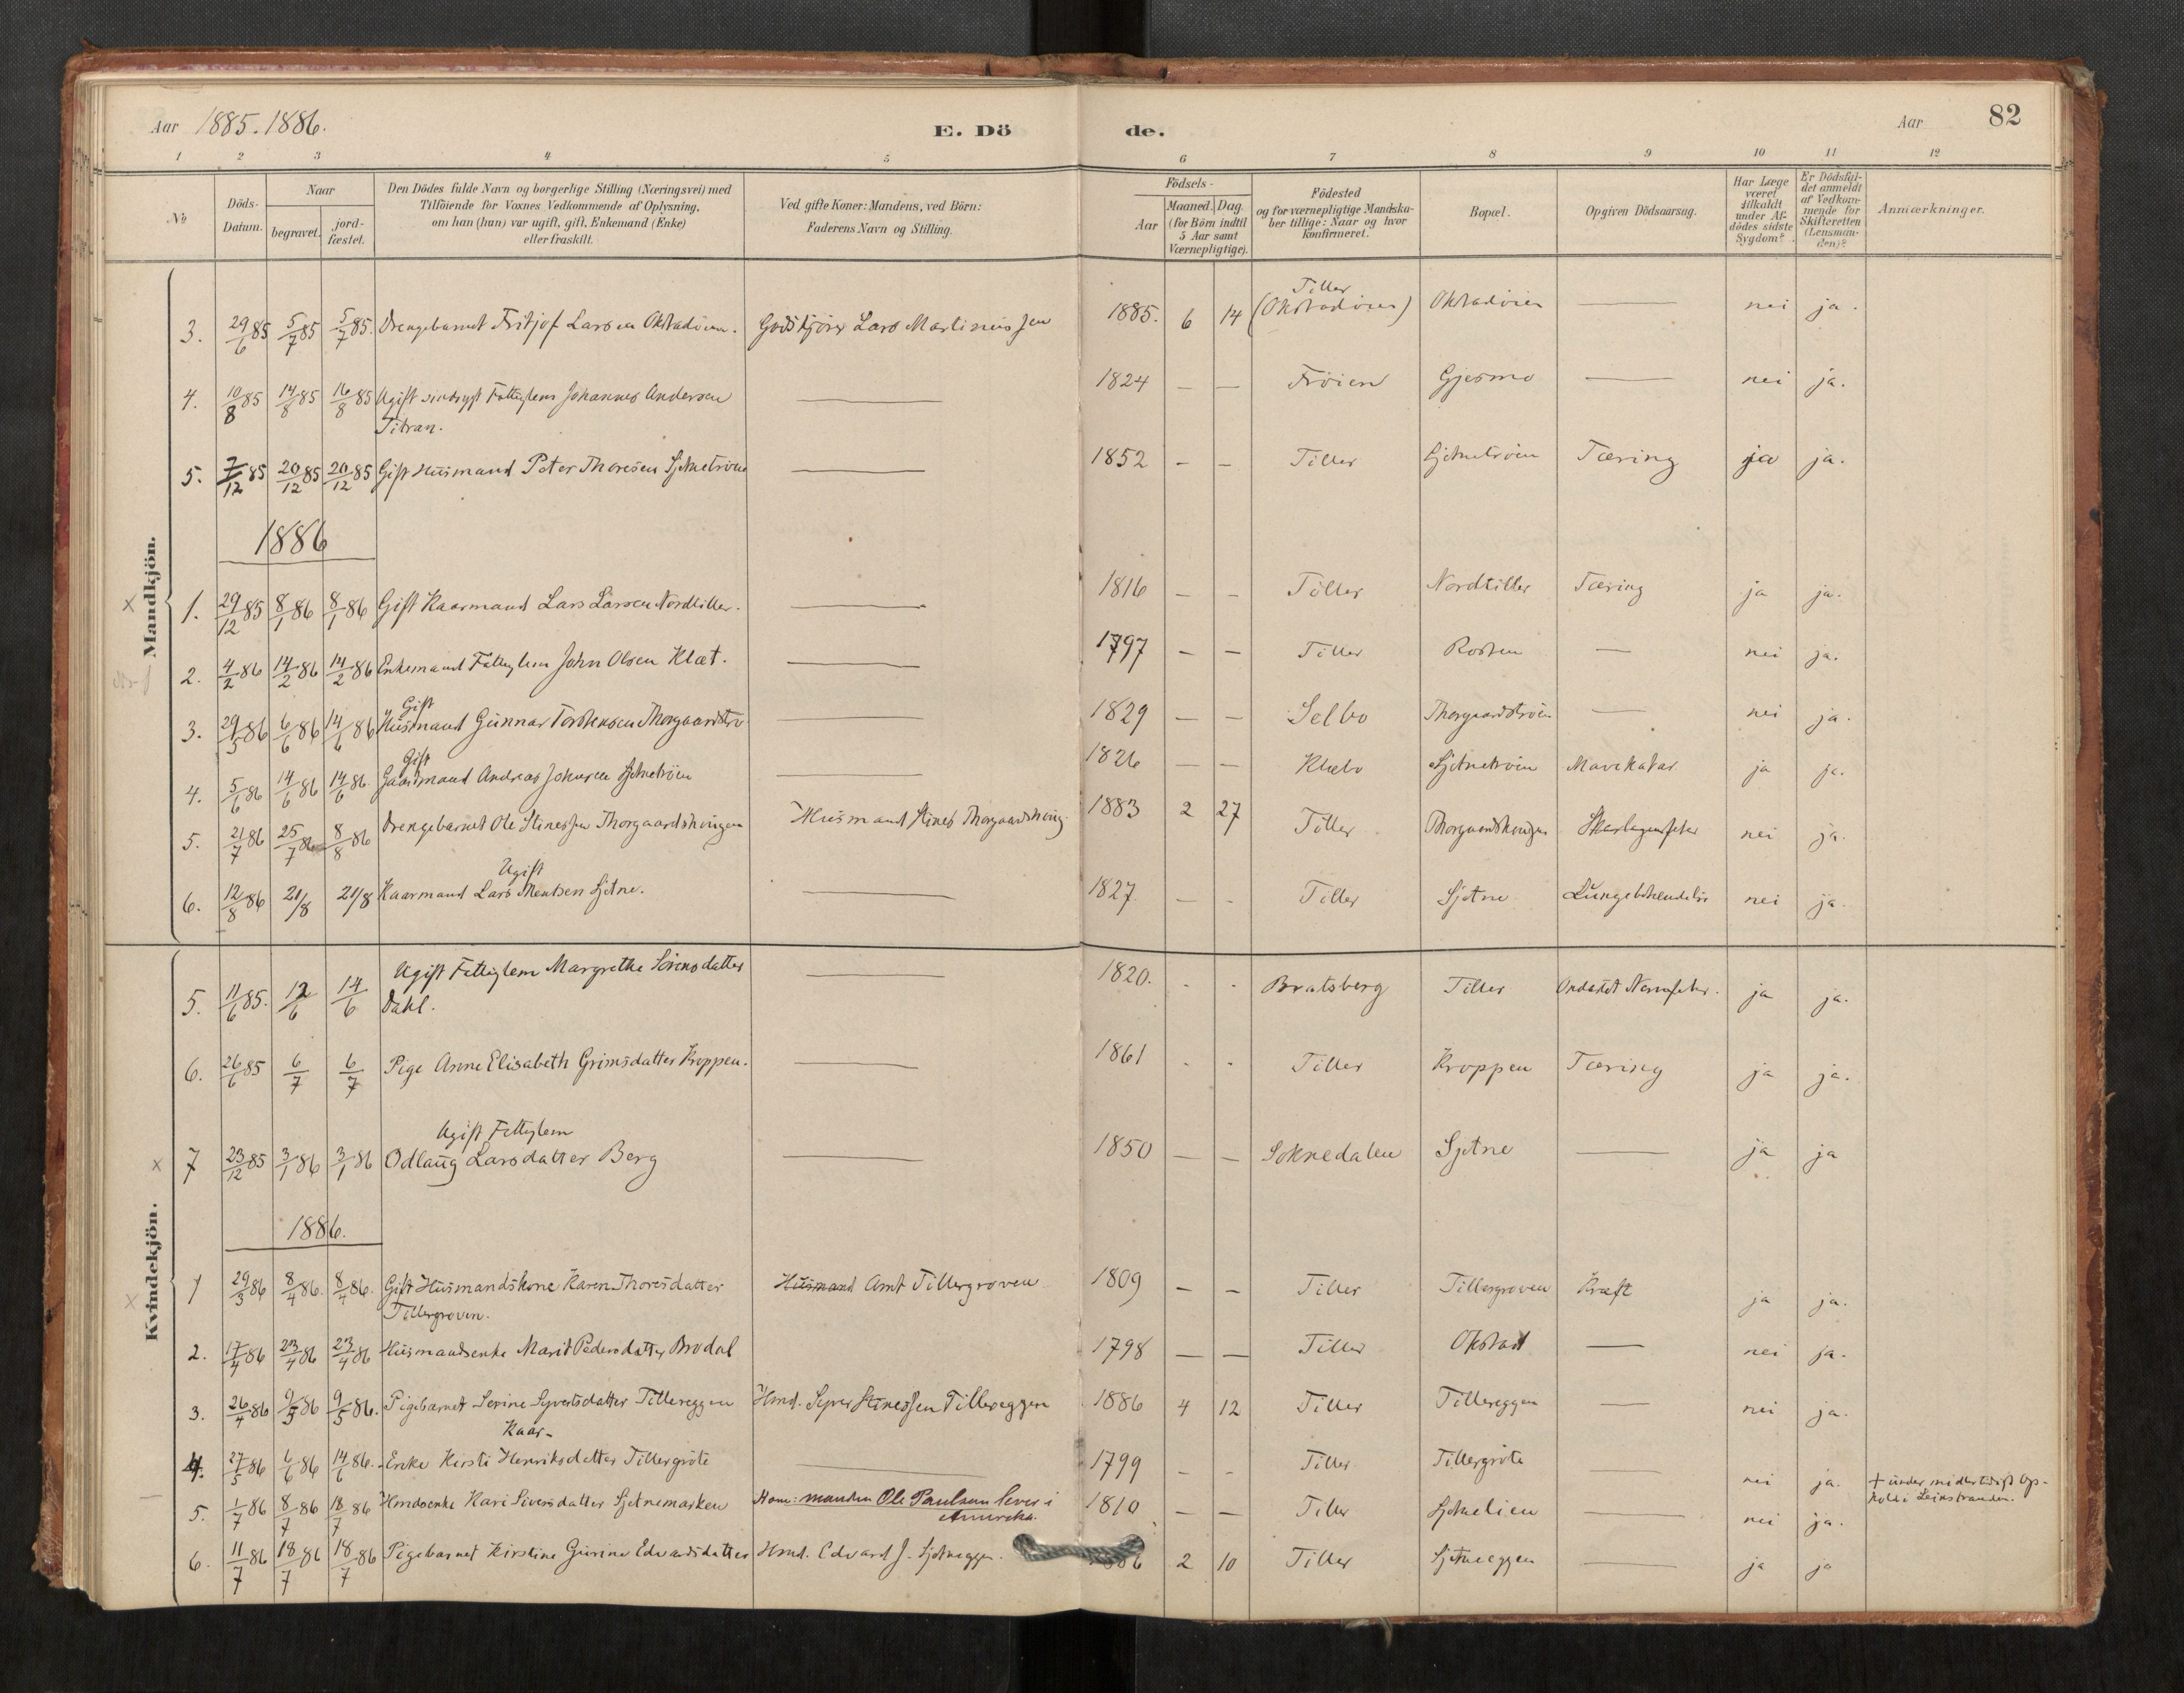 Aar 1885. 1886.
E. Dö de.
Aar 82
1 2 3 4 5 6 7 8 9 10 11 12
No
Döds-
Datum.
Naar
begravet. jord-
fæstet.
Den Dödes fulde Navn og borgerlige Stilling (Næringsvei) med
Tilföiende for Voxnes Vedkommende af Oplysning,
om han (hun) var ugift, gift, Enkemand (Enke)
eller fraskilt.
Ved gifte Koner: Mandens, ved Börn:
Faderens Navn og Stilling.
Födsels-
Aar Maaned. Dag.
(for Börn indtil
5 Aar samt
Værnepligtige).
Födested
og for værnepligtige Mandska-
ber tillige: Naar og hvor
konfirmeret.
Bopæl.
Opgiven Dödsaarsag.
Har Læge
været
tilkaldt
under Af-
dödes sidste
Sygdom?
Er Dödsfal-
det anmeldt
af Vedkom-
mende for
Skifteretten
(Lensman-
den)?
Anmærkninger.
Mandkjön.
Tiller
3. 29/6 85 5/7 85 5/7 85. Drengebarnet Fritjof Larsen Okstadöien. Lars Martinussen 1885. 6 14 (Okstadöien) Okstadöien — nei ja.
4. 10/8 85 14/8 85 16/8 85 Ugift sindsygt Fattiglem Johannes Andersen — 1824 — — Fröien Gjesmo — nei ja.
Titran.
5. 7/12 85 20/12 85 20/12 85 Gift Husmand Peter Thoresen Sjetnetröen — 1852 - - Tiller Sjetnetröen Tæring ja ja.
1886
x 1. 29/12 85 8/1 86 8/1 86 Gift Kaarmand Lars Larsen Nordtiller. — 1816 — - Tiller Nordtiller Tæring ja ja.
2. 4/2 86 14/2 86 14/2 86 Enkemand Fattiglem John Olsen Klæt. — 1797 — — Tiller Rosten — nei ja.
Gift
3. 29/5 86 6/6 86 14/6 86 Husmand Gunnar Torstensen Thorgaardströ — 1829 — — Selbo Thorgaardströen — nei ja.
Gift
4. 5/6 86 14/6 86 14/6 86. Gaardmand Andreas Johnsen Sjetnetröen — 1826 — — Klæbo Sjetnetröen Mavekatar ja ja.
5. 21/7 86 25/7 86 8/8 86 Drengebarnet Ole Stinessen Thorgaardshaugen Husmand Stines Thorgaardshaug. 1883 2 27 Tiller Thorgaardshaugen Skarlagensfeber nei ja.
Ugift
6. 12/8 86 21/8 21/8 Kaarmand Lars Mentsen Sjetne. — 1827. — - Tiller Sjetne Lungebetændelse nei ja.
Kvindekjön.
5. 11/6 85. 12/6 14/6 Ugift Fattiglem Margrethe Sörensdatter — 1820. - - Bratsberg Tiller Ondartet Nervefeber. ja ja.
Dahl.
6. 26/6 85 6/7 6/7 Pige Anne Elisabeth Grimsdatter Kroppen. — 1861 - - Tiller Kroppen Tæring ja ja.
Ugift Fattiglem
x 7 23/12 85 3/1 86 3/1 86 Odlaug Larsdatter Berg — 1850 — — Soknedalen Sjetne — ja ja
1886.
x 1 29/3 86 8/4 86. 8/4 86. Gift Husmandskone Karen Thoresdatter Husmand Arnt Tillergroven 1809 — — Tiller Tillergroven Kræft ja ja.
Tillergroven.
2. 17/4 86 23/4 86 23/4 86 Husmandsenke Marit Pedersdatter Brodal 1798 — — Tiller Okstad — nei ja.
3. 26/4 86 9/5 86 9/5 86. Pigebarnet Serine Syvertsdatter Tillereggen Hmd. Syver Stinessen Tillereggen 1886 4 12 Tiller Tillereggen — nei ja.
Kaar-
4. 27/5 86 6/6 86 14/6 86. Enke Kirsti Henriksdatter Tillergröte — 1799 - - Tiller Tillergröte — nei ja. + under midlertidigt Op-
hold i Leinstranden.
5. 1/7 86 8/7 86 18/7 86 Hmdsenke Kari Siversdatter Sjetnemarken manden Ole Paulsen lever i 1810 — — Tiller Sjetnelien — nei ja.
Amerika.
6. 11/7 86 18/7 86 18/7 86 Pigebarnet Kirstine Gurine Edvardsdatter Hmd. Edvard J. Sjetneeggen. 1886 2 10 Tiller Sjetneeggen — ja ja